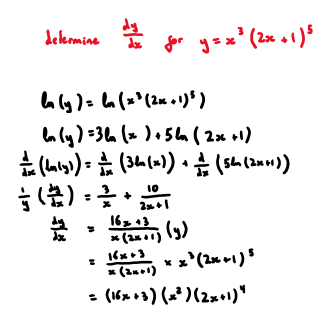 determine dy/dx for y = x³(2x+1)⁵
ln(y) = ln(x³(2x+1)⁵)
ln(y) = 3ln(x) + 5ln(2x+1)
d/dx(ln(y)) = d/dx(3ln(x)) + d/dx(5ln(2x+1))
1/y(dy/dx) = 3/x + 10/2x+1
dy/dx = 16x+3/x(2x+1) (y)
= 16x+3/x(2x+1) × x³(2x+1)⁵
= (16x+3)(x²)(2x+1)⁴